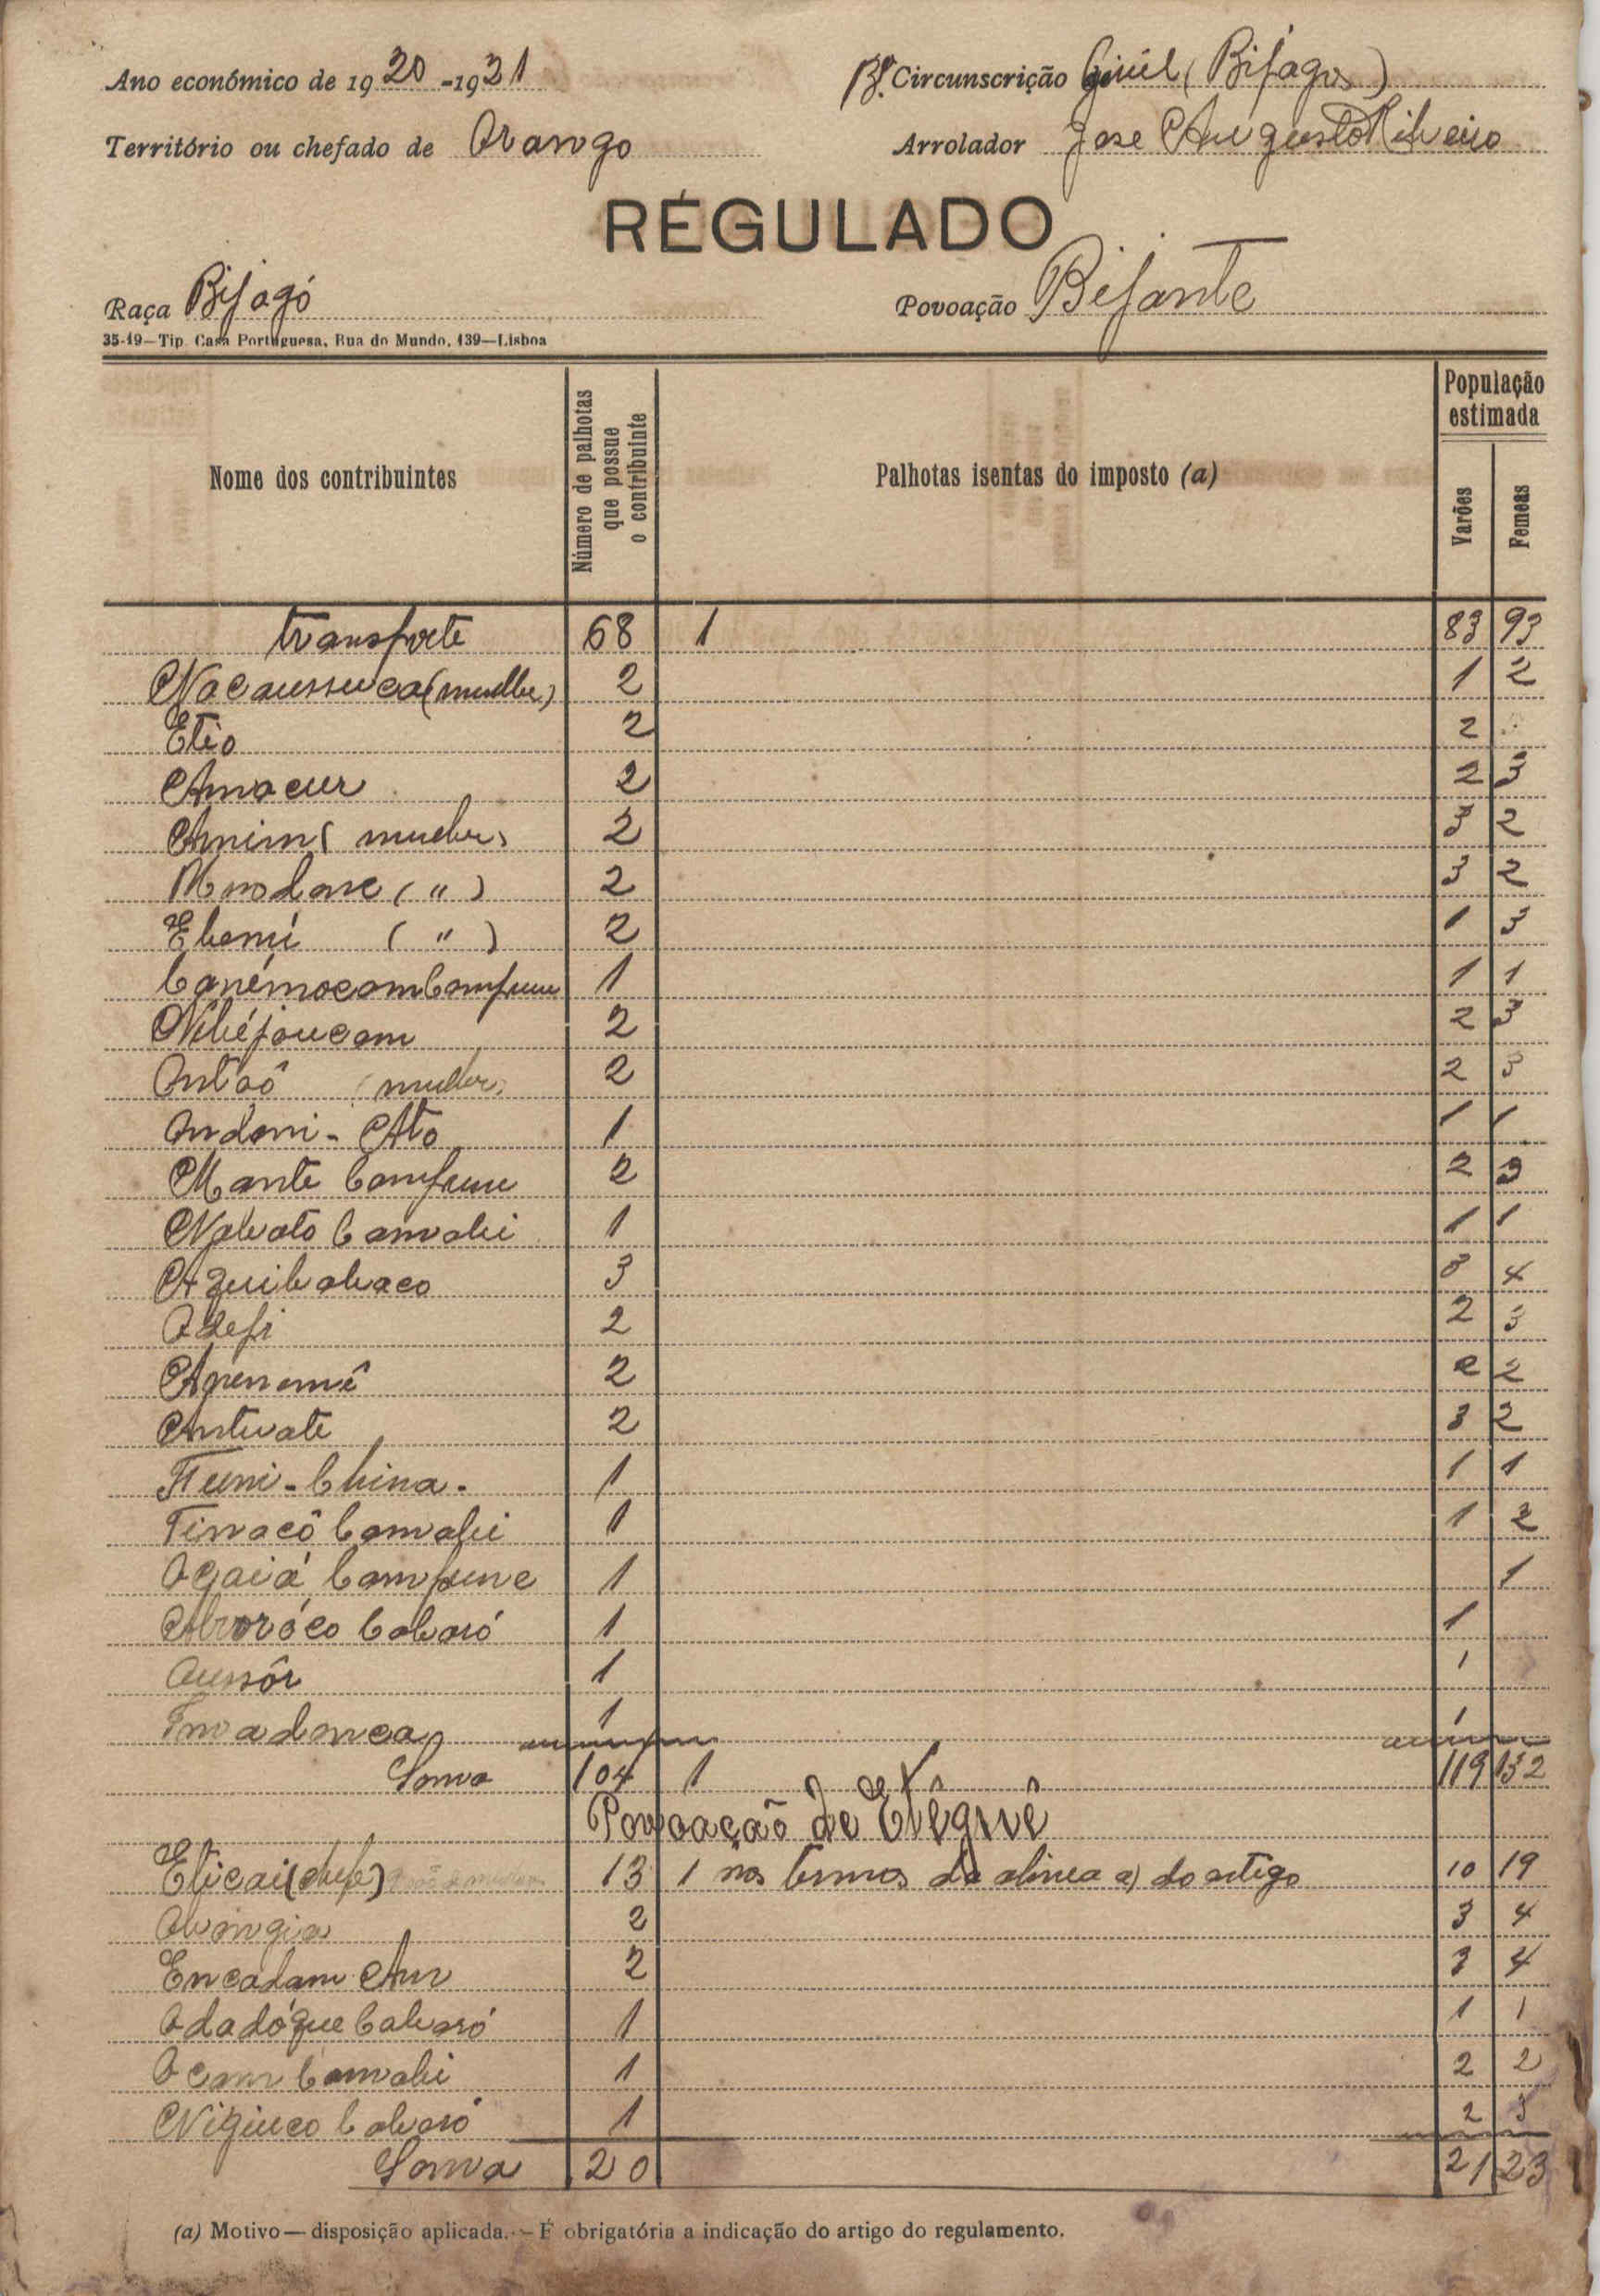 Ano económico de 1920-1921 Bº. Circunscrição Civil (Bijagos)
Território ou chefado de Orango Arrolador Jose Augusto Ribeiro
RÉGULADO
Raça Bijagó Povoação Bijante
35-19—Tip. Casa Portuguesa, Rua do Mundo, 139—Lisboa
Nome dos contribuintes Número de palhotas que possue o contribuinte Palhotas isentas do imposto (a) População estimada Varões Femeas
transporte 68 1 83 93
Nacaussuca (mulher) 2 1 2
Etio 2 2
Amacur 2 2 3
Anim (mulher) 2 3 2
(") 2 3 2
Ebami (") 2 1 3
1 1 1
2 2 3
Ontoô (mulher) 2 2 3
Ondoni - Ato 1 1 1
Mante Campune 2 2 3
Nabato Canvabi 1 1 1
3 3 4
2 2 3
Apenomê 2 2 2
Antuate 2 3 2
Funi - China - 1 1 1
Tinacô Canvabi 1 1 2
Ogaiá Campune 1 1
Cabaró 1 1
Aussôr 1 1
1 1
Soma 104 1 119 132
Povoação de Etêguê
Eticai (chefe) 13 1 nos termos da alinea a) do artigo 10 19
2 3 4
Encadam Aur 2 3 4
Odadógue Cabaró 1 1 1
Ocam Canvabi 1 2 2
Niguco Cabaró 1 2 3
Soma 20 21 23
(a) Motivo — disposição aplicada. — É obrigatória a indicação do artigo do regulamento.